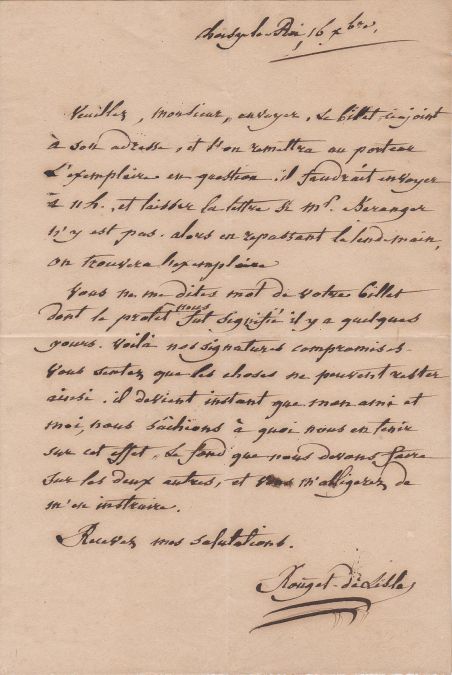 Choisy-le-Roi 16 xbre.
Veuillez, monsieur, envoyer, le billet ci-joint
à son adresse, et l'on remettra au porteur
l'exemplaire en question. il faudrait envoyer
à 11 h. et laisser la lettre si Mr. Béranger
n'y est pas. alors en repassant le lendemain,
on trouvera l'exemplaire
Vous ne me dites mot de votre billet
dont le protêt nous fut signifié il y a quelques
jours. voilà nos signatures compromises.
Vous sentez que les choses ne peuvent rester
ainsi. il devient instant que mon ami et
moi, nous sâchions à quoi nous en tenir
sur cet effet, le fond que nous devons faire
sur les deux autres, et vous m'obligerez de
m'en instruire.
Recevez mes salutations.
Rouget-de Lisle